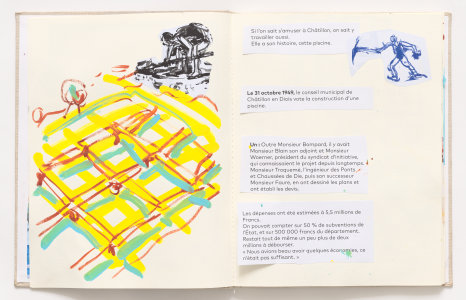 Si l'on sait s'amuser à Châtillon, on sait y
travailler aussi.
Elle a son histoire, cette piscine.
Le 31 octobre 1949, le conseil municipal de
Châtillon en Diois vote la construction d'une
piscine.
Un : Outre Monsieur Bompard, il y avait
Monsieur Blain son adjoint et Monsieur
Woerner, président du syndicat d'initiative,
qui connaissaient le projet depuis longtemps.
Monsieur Traquemé, l'ingénieur des Ponts
et Chaussées de Die, puis son successeur
Monsieur Faure, en ont dessiné les plans et
ont établi les devis.
Les dépenses ont été estimées à 5,5 millions de
Francs.
On pouvait compter sur 50 % de subventions de
l'État, et sur 500 000 francs du département.
Restait tout de même un peu plus de deux
millions à débourser.
« Nous avions beau avoir quelques économies, ce
n'était pas suffisant. »